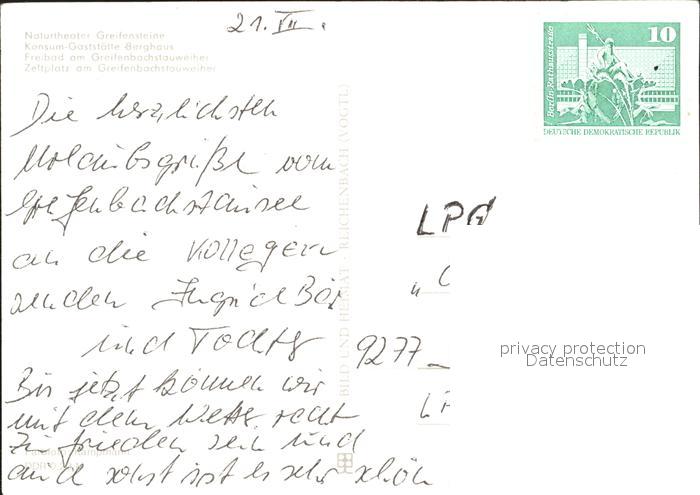 21. VII.
Naturtheater Greifensteine
Konsum-Gaststätte Berghaus
Freibad am Greifenbachstauweiher
Zeltplatz am Greifenbachstauweiher
10
Berlin, Rathausstraße
DEUTSCHE DEMOKRATISCHE REPUBLIK
Die herzlichsten
Urlaubsgrüße vom
Greifenbachstausee
an die Kollegen
senden Ingrid Bär
und Tochter
Bis jetzt können wir
mit dem Wetter recht
zufrieden sein und
auch sonst ist es sehr schön
BILD UND HEIMAT · REICHENBACH (VOGTL)
LPG
9277
privacy protection
Datenschutz